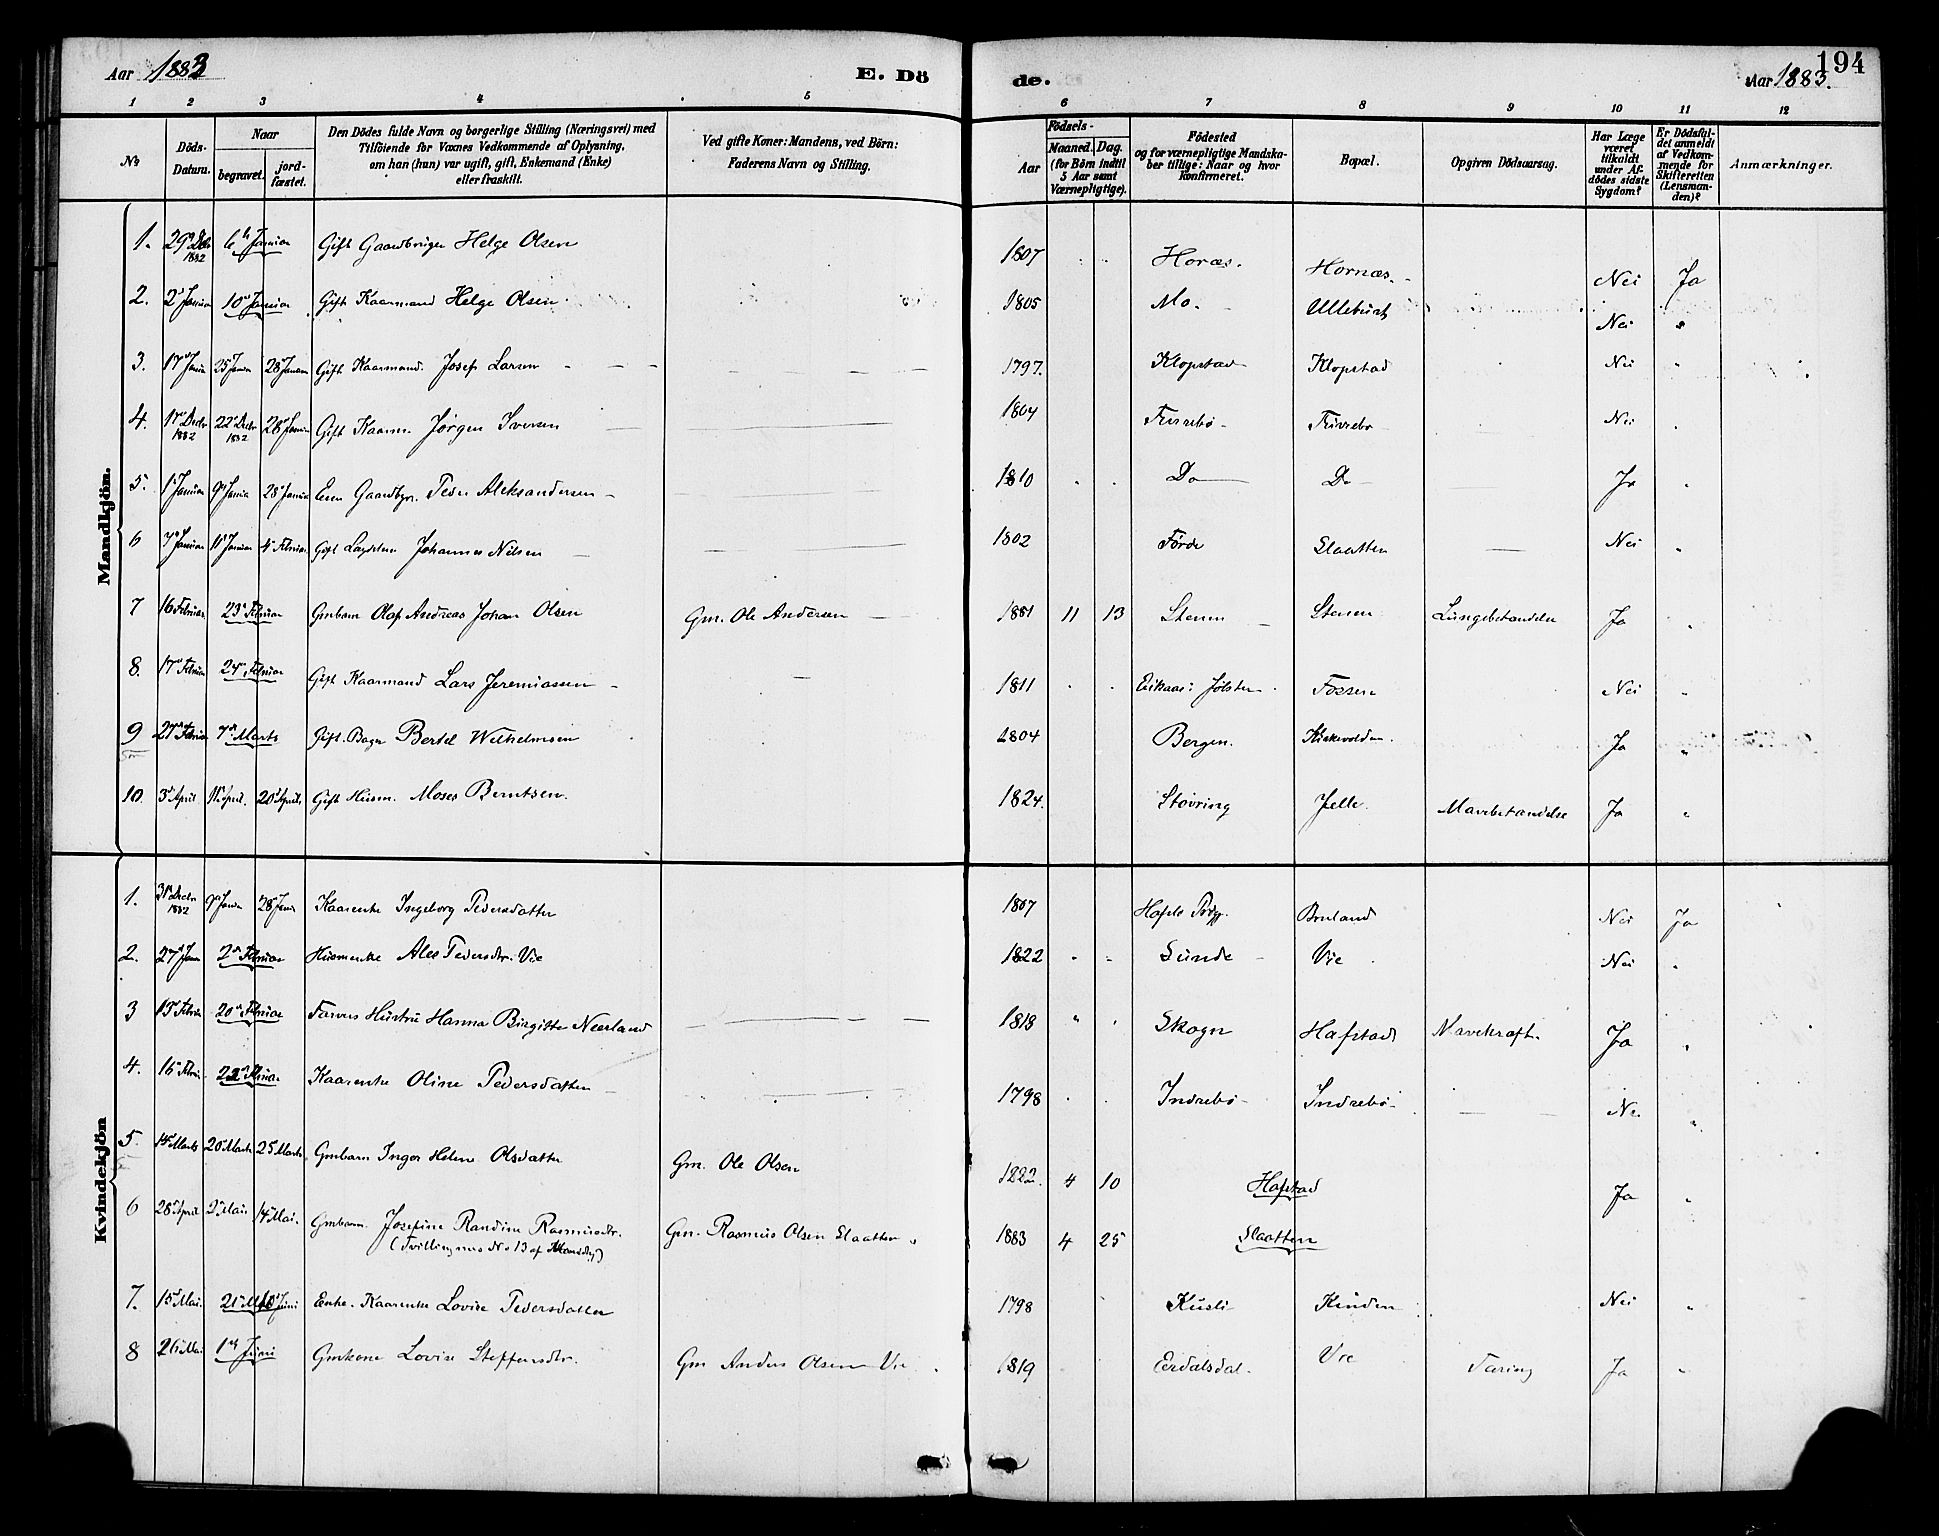 194
Aar 1883
E. Dö
de.
Aar 1883.
1 2 3 4 5 6 7 8 9 10 11 12
No
Döds-Datum.
Naar
begravet.
jordfæstet.
Den Dödes fulde Navn og borgerlige Stilling (Næringsvei) med
Tilföiende for Voxnes Vedkommende af Oplysning,
om han (hun) var ugift, gift, Enkemand (Enke)
eller fraskilt.
Ved gifte Koner: Mandens, ved Börn:
Faderens Navn og Stilling.
Födsels-
Aar
Maaned. Dag.
(for Börn indtil
5 Aar samt
Værnepligtige).
Födested
og for værnepligtige Mandska-
ber tillige: Naar og hvor
Konfirmeret.
Bopæl.
Opgiven Dödsaarsag.
Har Læge
været
tilkaldt
under Af-
dödes sidste
Sygdom?
Er Dödsfal-
det anmeldt
af Vedkom-
mende for
Skifteretten
(Lensman-
den)?
Anmærkninger.
Mandkjön.
1. 29 Decbr 1882 6te Januar Gift Gaardbruger Helge Olsen 1807 Horæs. Hornæs. Nei Ja
2. 2 Januar 10 Januar Gift Kaarmand Helge Olsen 1805 Mo Ulleburst Nei "
3. 17 Janua 25 Januar 28 Januar Gift Kaarmand. Josef Larsen 1797. Klopstad Klopstad Nei "
4. 17 Decbr 1882 22 Decbr 1882 28 Januar Gift Kaarm. Jørgen Iversen 1804 Furrebø Furrebø Nei
5. 1 Januar 9 Januar 28 Januar Enm Gaardbgr. Peder Aleksandersen 1810 Do Do Ja "
6 7 Januar 11 Januar 4 Februar Gift Lægdslem Johannes Nilsen 1802 Førde Slaatten Nei "
7 16 Februar 23 Februar Gmbarn Olaf Andreas Johan Olsen Gm. Ole Andersen 1881 11 13 Stenen Stenen Lungebetændelse Ja "
8. 17 Februar 24 Februar Gift Kaarmand Lars Jeremiassen 1811 Eikaas: Jølster Fossen Nei "
9 27 Februar 7de Marts Gift. Bager Bertel Wilhelmsen 1804 Bergen. Kirkevolden. Ja "
10. 3 April 11 April. 20 April Gift Husm. Moses Berntsen. 1824. Støvring Jelle. Mavebetændelse Ja "
Kvindekjön
1. 31 Decbr 1882 9 Januar 28 Januar Kaarenke Ingeborg Pedersdatter 1807 Bruland Nei Ja
2. 27 Jan 2 Februar Husmenke Ales Pedersdtr. Vie 1822 " " Sunde Vie Nei "
3 13 Februar 20 Februar Farvers Hustru Hanna Birgitte Neerland 1818 " Skogn Hafstad Mavekræft. Ja "
4. 16 Februar 22 Februar Kaarenke Oline Pedersdatter 1798 Indrebø Indrebø Nei "
5. 14 Marts 20 Marts 25 Marts Gmbarn Inger Helene Olsdatter Gm. Ole Olsen 1222. 4 10 Hafstad Ja "
6 28 April 2 Mai 14 Mai. Gmbarn. Josefine Randine Rasmusdtr. Gm. Rasmus Olsen Slaatten 1883 4 25 Slaatten
(Tvilling med No 13 af Mandkj)
7. 15 Mai. 21 Mai Juni Enke. Kaarenke Lovise Pedersdatter 1798 Kusli Kinden Nei "
8 26 Mai 1ste Juni Gmkone Lovise Steffensdtr. Gm Anders Olsen Vie 1819 Eerdalsdal. Vie Tæring Ja "